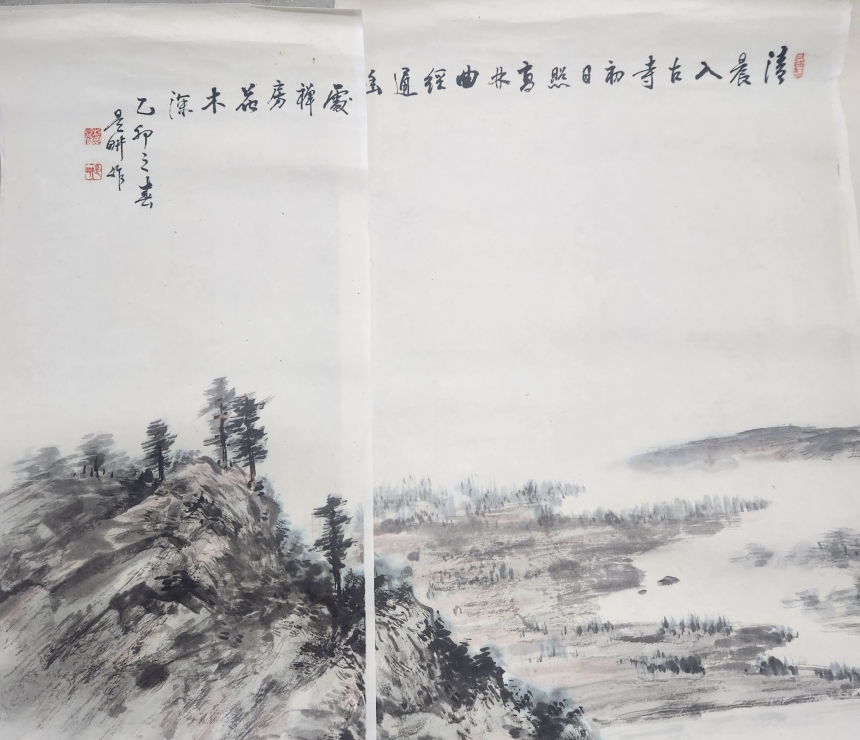 清晨入古寺初日照高林曲經通幽處禪房花木深
乙卯之春
畊作